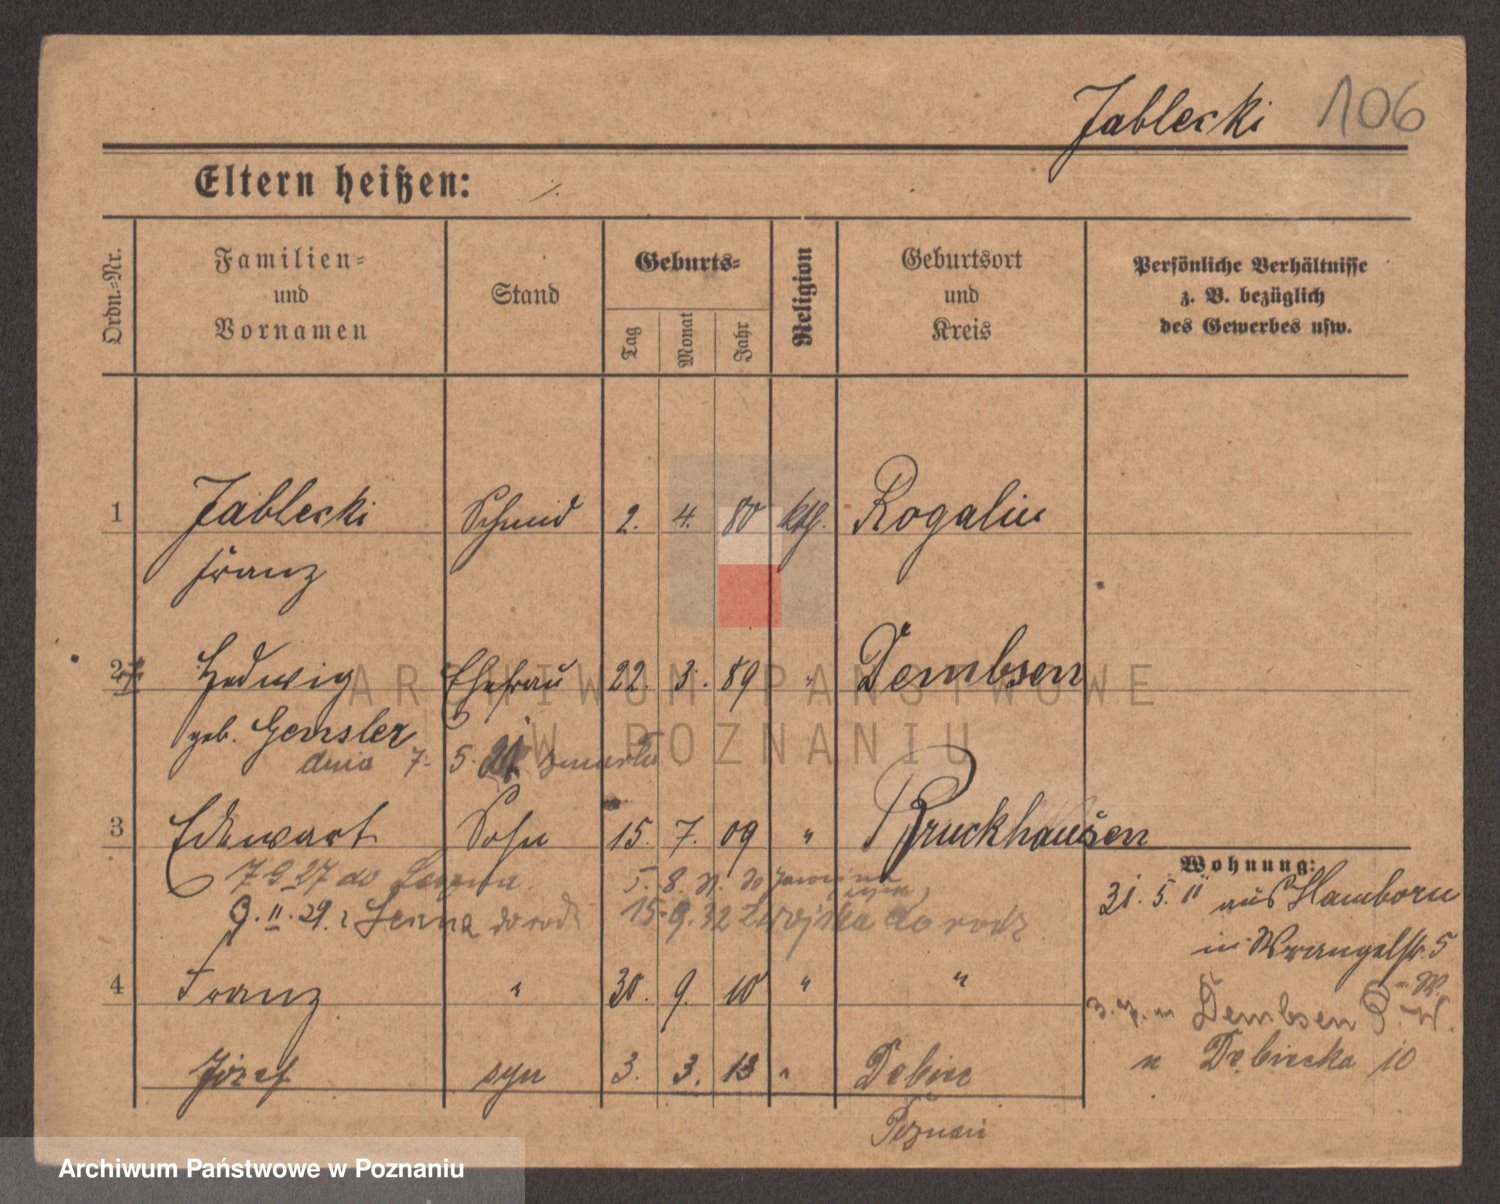 Jablecki 106
Eltern heißen: ./.
Ordn.-Nr.
Familien-
und
Vornamen
Stand
Geburts-
Tag
Monat
Jahr
Religion
Geburtsort
und
Kreis
Persönliche Verhältnisse
z. B. bezüglich
des Gewerbes usw.
1 Jablecki Schmid 2. 4. 80 kth. Rogalin
Franz
2 Hedwig Ehefrau 22. 3. 89 " Dembsen
geb. Gensler
dnia 7. 5. 21 zmarła
3 Edewart Sohn 15. 7. 09 " Bruckhausen
7 9 27 do
9. 11. 29. z do rodz
15. 9. 32 do rodz
4 Franz " 30. 9. 10 " "
Józef syn 3. 3. 13 " Dębiec
Poznań
Wohnung:
31. 5. 11 aus Hamborn
in Wrangelstr. 5
Dembsen
n Dębiecka 10
ARCHIWUM PAŃSTWOWE
W POZNANIU
Archiwum Państwowe w Poznaniu